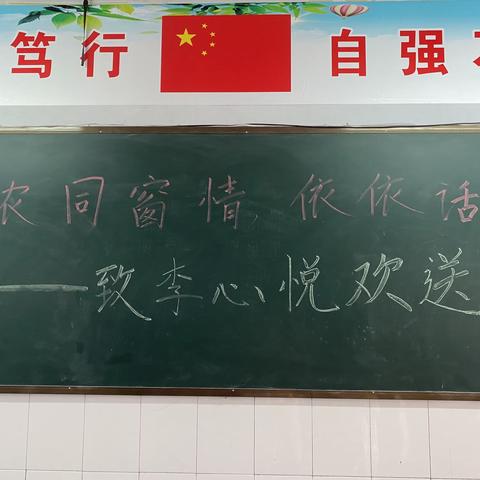 笃行 自强
农同窗情,依依话
——致李心悦欢送